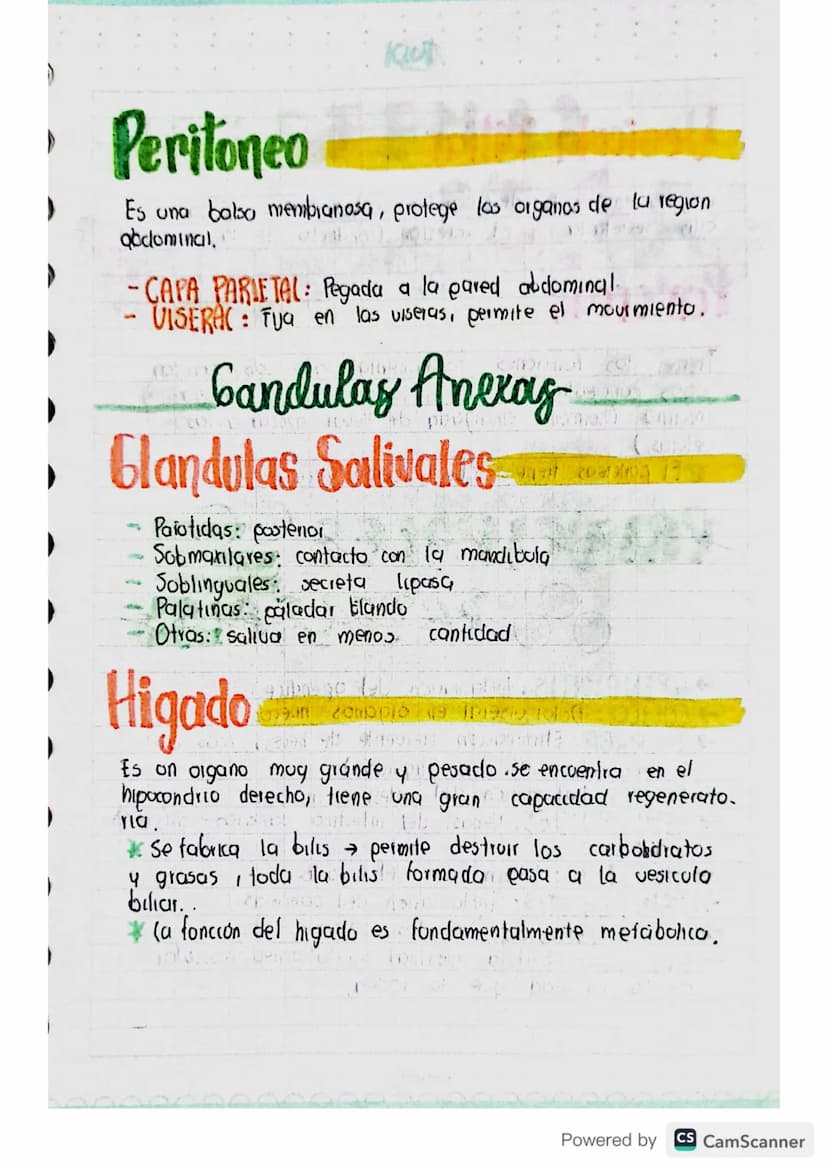 Peritoneo
Es una bolsa membranosa, protege los organos de la region
abdominal.
- CAPA PARIETAL: Pegada a la pared abdominal.
- VISERAL: Fija en las viseras, permite el movimiento.
Gandulas Anexas
Glandulas Salivales
- Parotidas: posterior
- Submaxilares: contacto con la mandibula
- Soblinguales: secreta lipasa
- Palatinas: paladar blando
- Otras: saliva en menos cantidad
Higado
Es un organo muy grande y pesado. se encuentra en el
hipocondrio derecho, tiene una gran capacidad regenerato-
ria.
* Se fabrica la bilis → permite destruir los carbohidratos
y grasas, toda la bilis formada pasa a la vesicula
biliar..
* La funcion del higado es fundamentalmente metabolica.
Powered by CS CamScanner